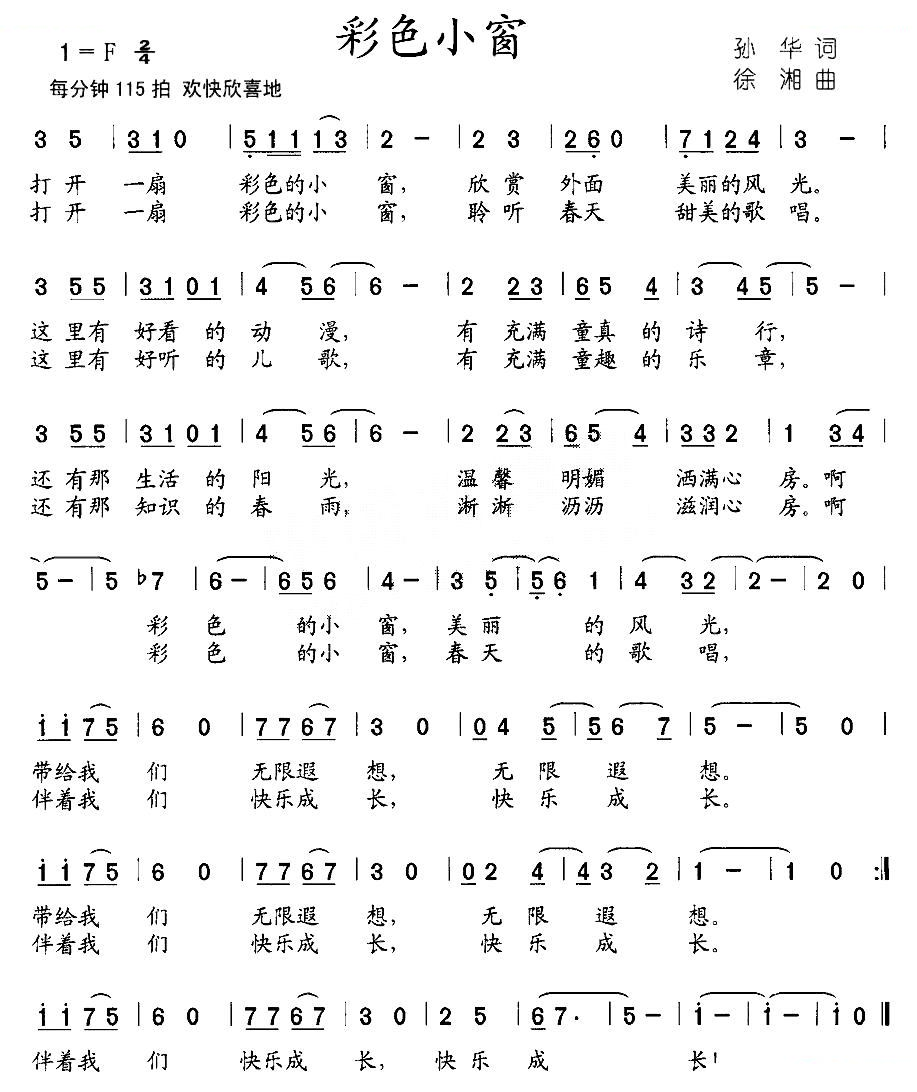 彩色小窗
1=F 2/4
孙 华 词
每分钟 115 拍 欢快欣喜地
徐 湘 曲
3 5 | 3 1 0 | 5 1 1 1 3 | 2 - | 2 3 | 2 6 0 | 7 1 2 4 | 3 - |
打 开 一扇 彩色的小 窗, 欣 赏 外面 美丽的风 光。
打 开 一扇 彩色的小 窗, 聆 听 春天 甜美的歌 唱。
3 5 5 | 3 1 0 1 | 4 5 6 | 6 - | 2 2 3 | 6 5 4 | 3 4 5 | 5 - |
这 里有 好看 的 动 漫, 有 充满 童真 的 诗 行,
这 里有 好听 的 儿 歌, 有 充满 童趣 的 乐 章,
3 5 5 | 3 1 0 1 | 4 5 6 | 6 - | 2 2 3 | 6 5 4 | 3 3 3 2 | 1 3 4 |
还 有那 生活 的 阳 光, 温 馨 明媚 洒满心 房。啊
还 有那 知识 的 春 雨, 淅 淅 沥沥 滋润心 房。啊
5 - | 5 ♭7 | 6 - | 6 5 6 | 4 - | 3 5 | 5 6 1 | 4 3 2 | 2 - | 2 0 |
彩 色 的小 窗, 美 丽 的 风 光,
彩 色 的小 窗, 春 天 的 歌 唱,
i i 7 5 | 6 0 | 7 7 6 7 | 3 0 | 0 4 5 | 5 6 7 | 5 - | 5 0 |
带给我 们 无限遐 想, 无 限 遐 想。
伴着我 们 快乐成 长, 快 乐 成 长。
i i 7 5 | 6 0 | 7 7 6 7 | 3 0 | 0 2 4 | 4 3 2 | 1 - | 1 0 :‖
带给我 们 无限遐 想, 无 限 遐 想。
伴着我 们 快乐成 长, 快 乐 成 长。
i i 7 5 | 6 0 | 7 7 6 7 | 3 0 | 2 5 | 6 7 · | 5 - | i - | i - | i 0 ‖
伴着我 们 快乐成 长, 快 乐 成 长!